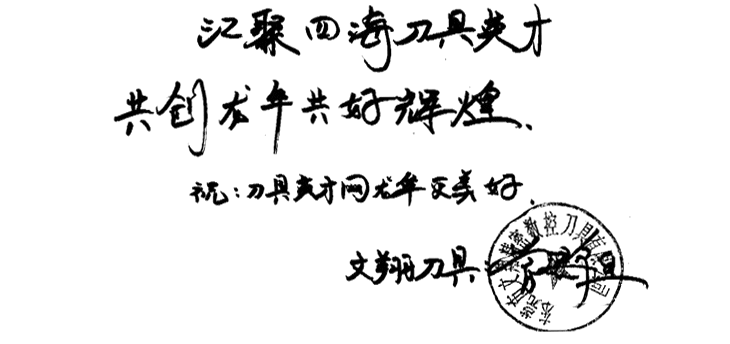 江聚四海刀具英才
共创龙年共好辉煌、
祝:刀具英才网龙年更美好
文翔刀具:
精密数控刀具有限